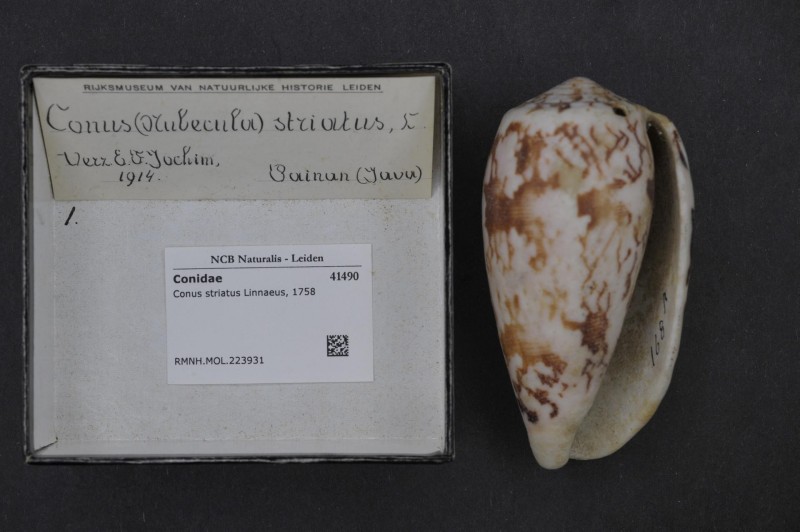 RIJKSMUSEUM VAN NATUURLIJKE HISTORIE LEIDEN
Conus (Nubecula) striatus, L.
Verz. E. F. Jochim,
1914.
Painan (Java)
1.
NCB Naturalis - Leiden
Conidae 41490
Conus striatus Linnaeus, 1758
RMNH.MOL.223931
168